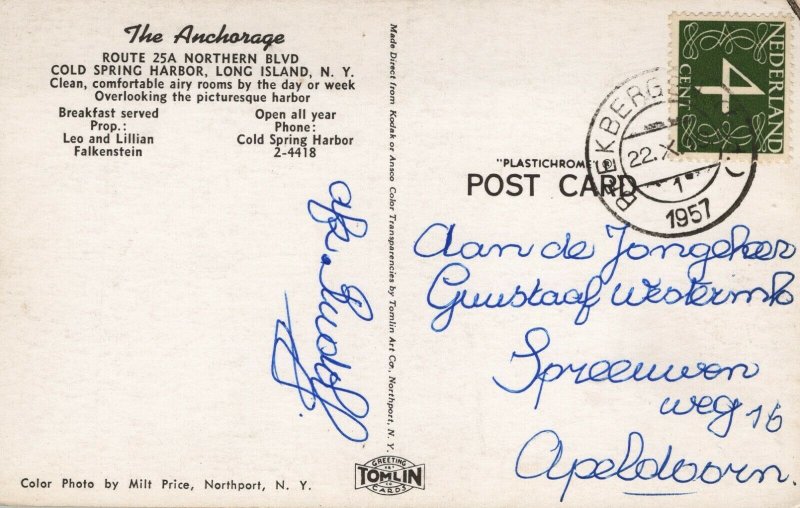 The Anchorage
ROUTE 25A NORTHERN BLVD
COLD SPRING HARBOR, LONG ISLAND, N. Y.
Clean, comfortable airy rooms by the day or week
Overlooking the picturesque harbor
Breakfast served
Prop.:
Leo and Lillian
Falkenstein
Open all year
Phone:
Cold Spring Harbor
2-4418
afz. Rudolf
Color Photo by Milt Price, Northport, N. Y.
Made Direct from Kodak or Ansco Color Transparencies by Tomlin Art Co., Northport, N. Y.
GREETING
ART
TOMLIN
CARDS
"PLASTICHROME"®
POST CARD
NEDERLAND
4
CENT
22.X
1
1957
Aan de Jongeheer
Guustaaf Westerink
Spreeuwen
weg 16
Apeldoorn.